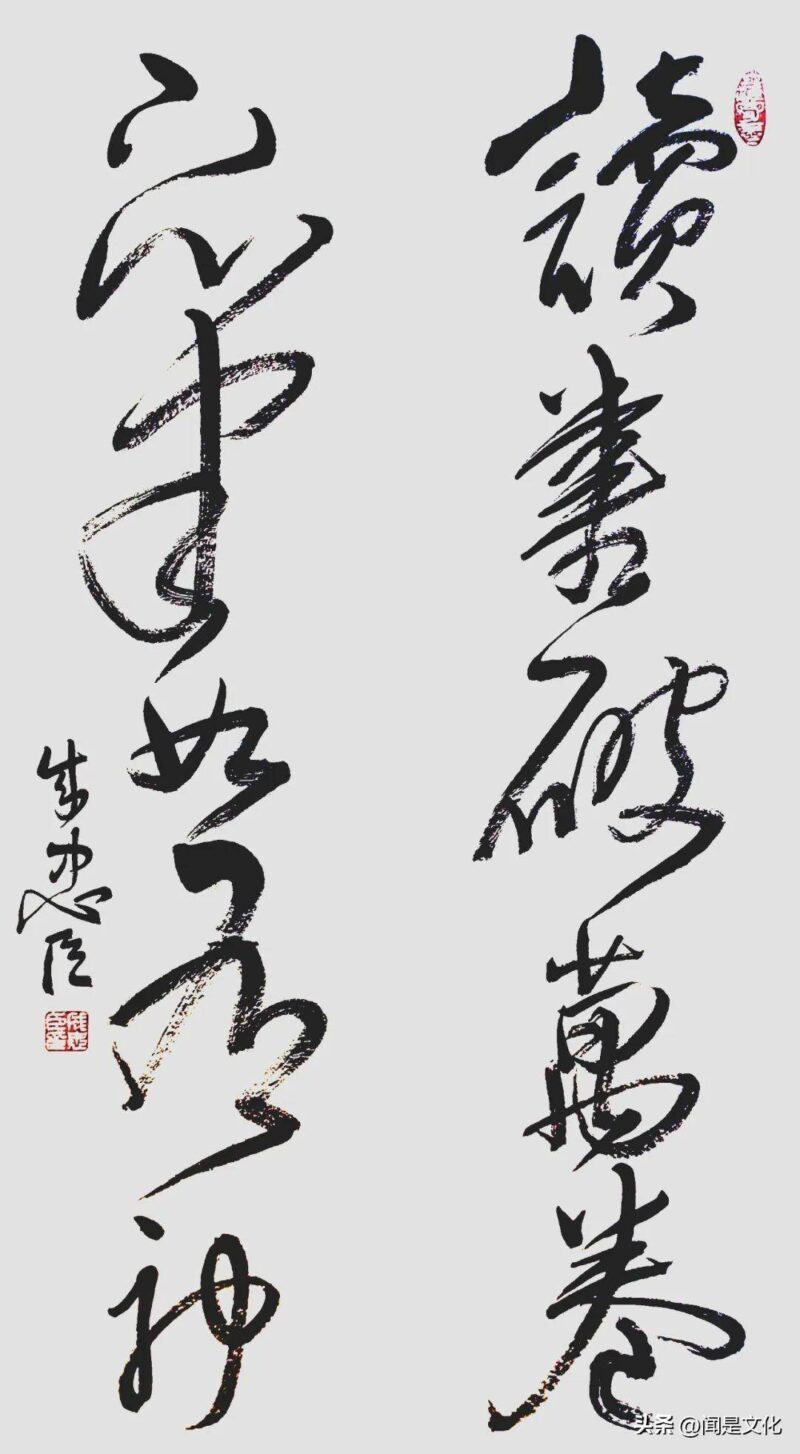 讀書破萬卷
下筆如有神
忠臣
头条 @闻是文化